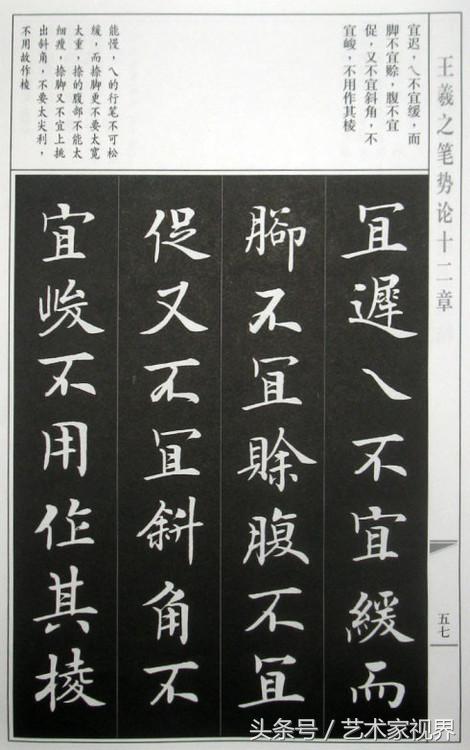 王羲之笔势论十二章
宜迟，乀不宜缓，而
脚不宜赊，腹不宜
促，又不宜斜角，不
宜峻，不用作其棱
能慢，乀的行笔不可松
缓，而捺脚更不要太宽
太重，捺的腹部不能太
细瘦，捺脚又不宜上挑
出斜角，不要太尖利，
不用故作棱
冝遲乀不宜緩而
腳不冝賒腹不冝
促又不冝斜角不
宜峻不用作其棱
五七
头条号／艺术家视界